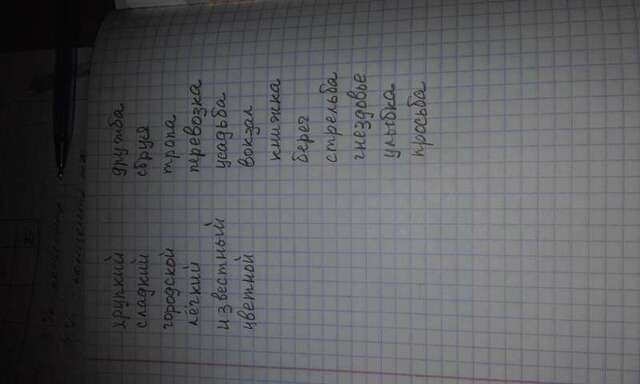 хрупкий дружба
сладкий сбруя
городской тропа
лёгкий перевозка
известный усадьба
цветной вокзал
книжка
берег
стрельба
гнездовье
улыбка
просьба